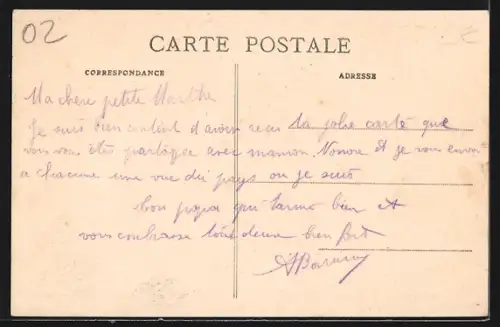 02
CARTE POSTALE
CORRESPONDANCE
ADRESSE
Ma chere petite Marthe
Je suis bien contint d'avoir recu ta jolie carte que
vous vous êtes partagee avec maman Nonore et je vous envoie
a chacune une vue du pays ou je suis
ton papa qui t'aime bien et
vous embrasse toute deux bien fort